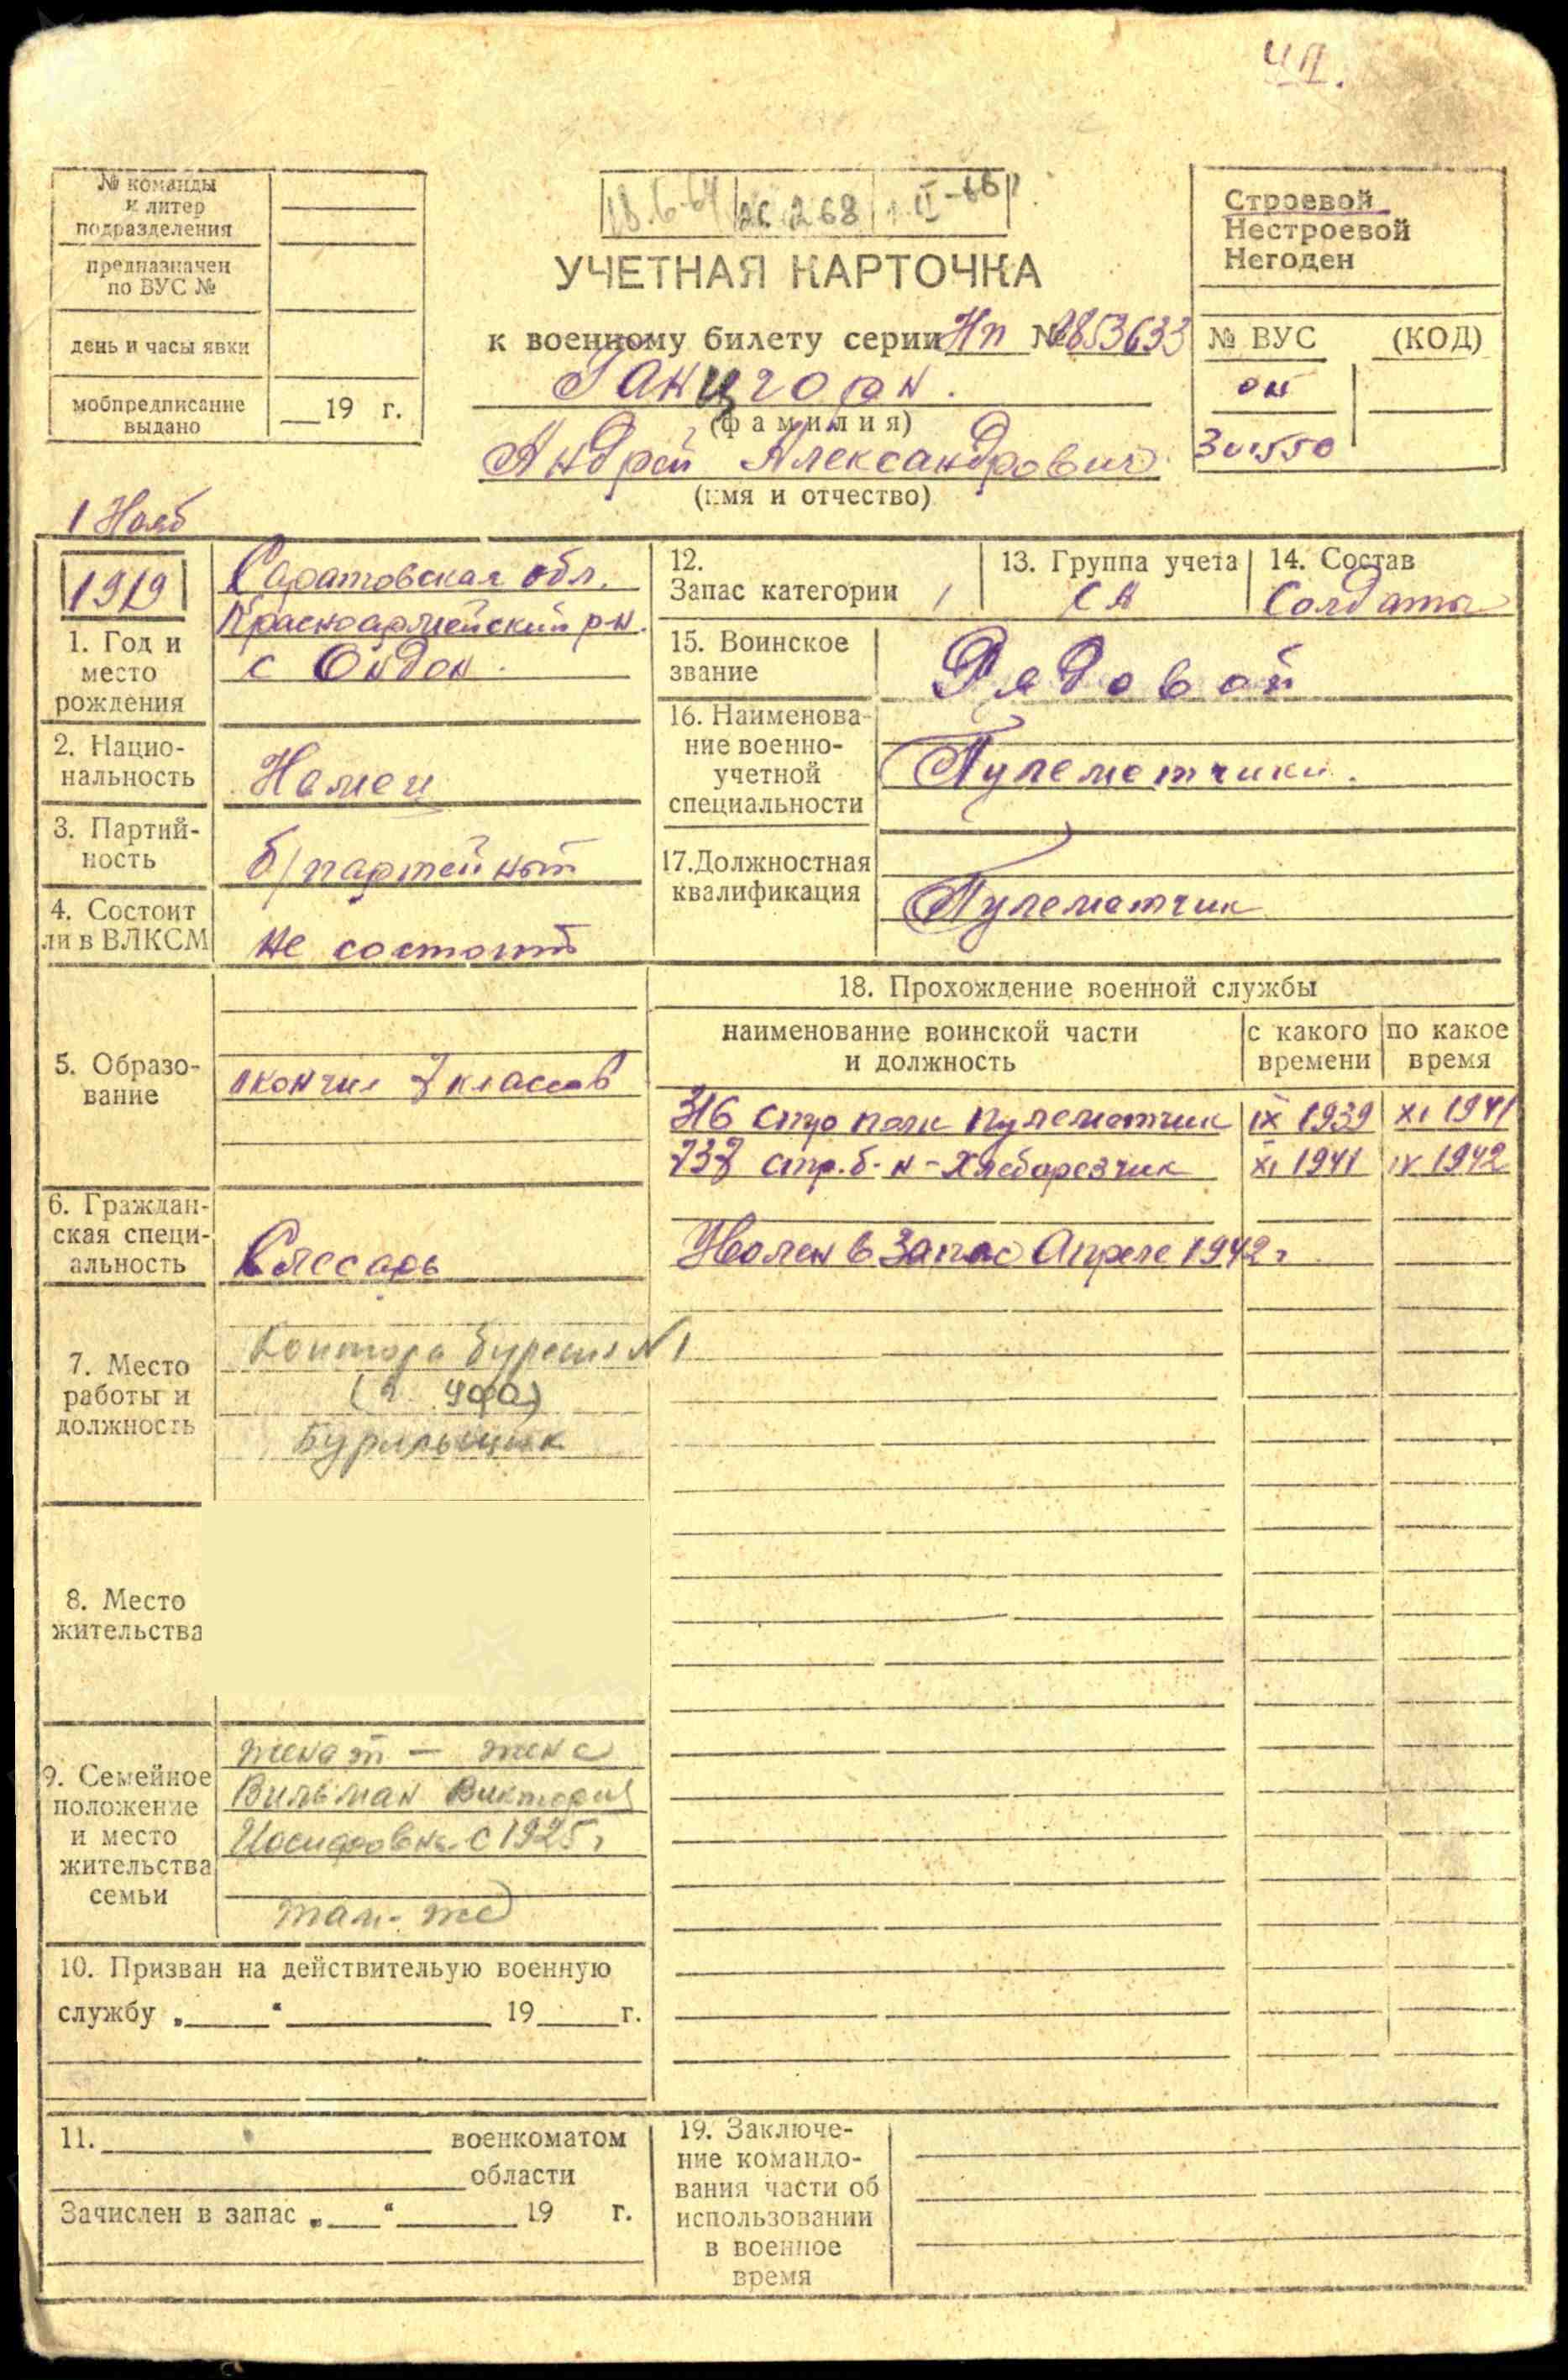 ЧП.
№ команды
и литер
подразделения
предназначен
по ВУС №
день и часы явки
мобпредписание
выдано
19 г.
18.6-64 26.2.68
УЧЕТНАЯ КАРТОЧКА
к военному билету серии Нп № 2853633
Ганцгорн.
(фамилия)
Андрей Александрович
(имя и отчество)
Строевой
Нестроевой
Негоден
№ ВУС (КОД)
1 Нояб
1919
1. Год и
место
рождения
Саратовская обл.
Красноармейский р-н.
с
2. Нацио-
нальность
Немец
3. Партий-
ность
б/партейный
4. Состоит
ли в ВЛКСМ
не состоит
5. Образо-
вание
окончил 7 классов
6. Граждан-
ская специ-
альность
Слесарь
7. Место
работы и
должность
Контора бурения №1
(г. Уфа)
Бурильщик
8. Место
жительства
9. Семейное
положение
и место
жительства
семьи
женат – жена
Вильман Виктория
Иосифовна с 1925г
там-же
10. Призван на действительую военную
службу „ “ 19 г.
11. военкоматом
области
Зачислен в запас „ “ 19 г.
12.
Запас категории 1
13. Группа учета
СА
14. Состав
Солдаты
15. Воинское
звание
Рядовой
16. Наименова-
ние военно-
учетной
специальности
Пулеметчики.
17. Должностная
квалификация
Пулеметчик
18. Прохождение военной службы
наименование воинской части
и должность
с какого
времени
по какое
время
316 стр полк пулеметчик IX 1939 XI 1941
737 стр. б-н - Хлеборезчик XI 1941 IV 1942
Уволен в Запас Апреле 1942г
19. Заключе-
ние командо-
вания части об
использовании
в военное
время